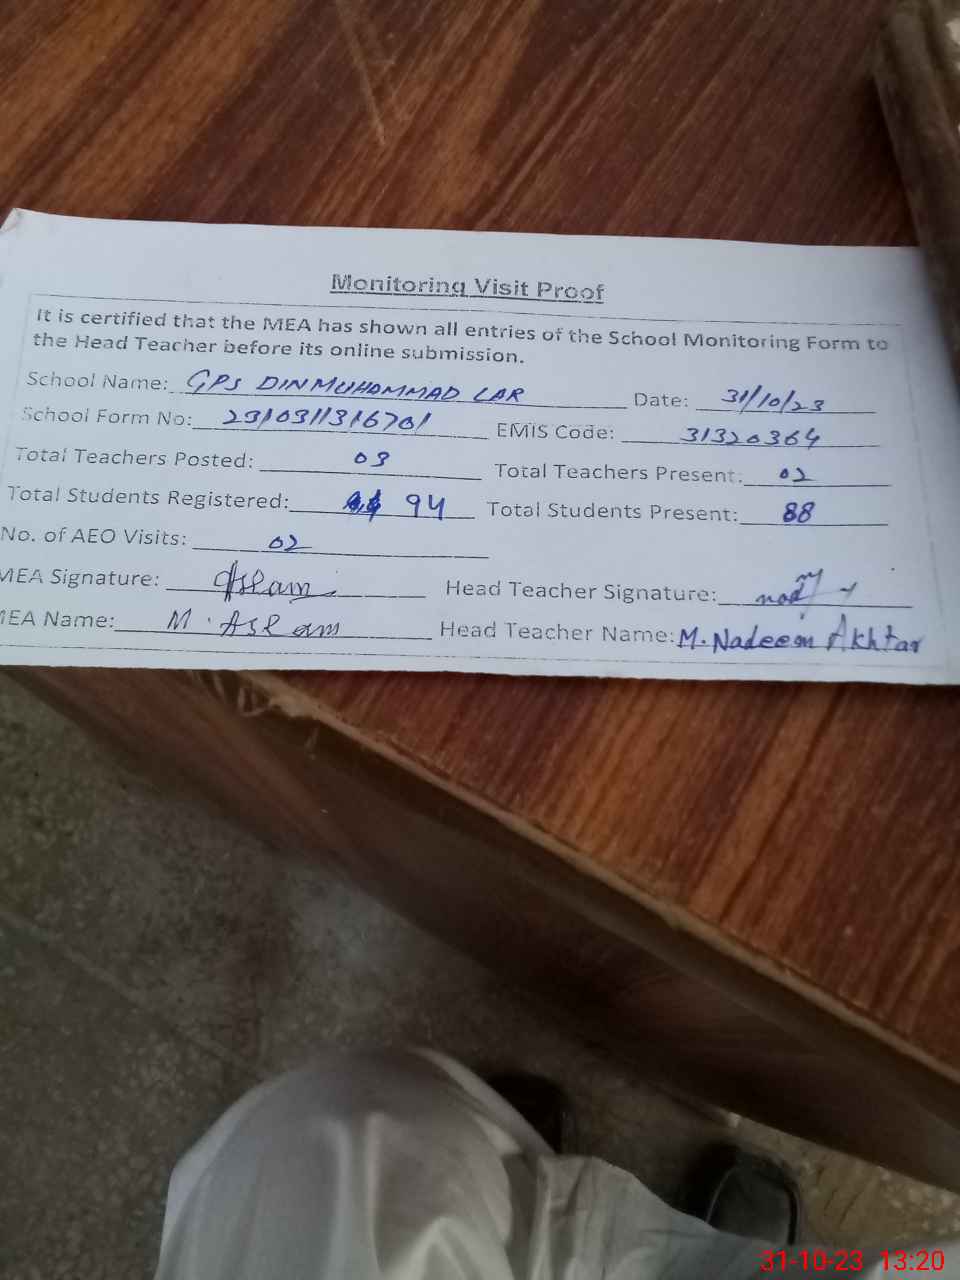 Monitoring Visit Proof
It is certified that the MEA has shown all entries of the School Monitoring Form to
the Head Teacher before its online submission.
School Name: GPS DIN MUHAMMAD LAR Date: 31/10/23
School Form No: 2310311316701 EMIS Code: 31320364
Total Teachers Posted: 03 Total Teachers Present: 02
Total Students Registered: 94 Total Students Present: 88
No. of AEO Visits: 02
MEA Signature: Aslam Head Teacher Signature:
MEA Name: M. Aslam Head Teacher Name: M. Nadeem Akhtar
31-10-23 13:20